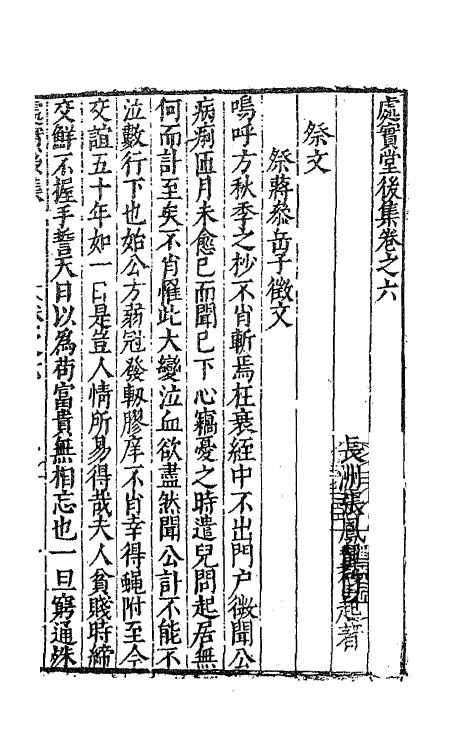 處實堂後集卷之六
長洲張鳳翼伯起著
祭文
祭蔣叅岳子徵文
嗚呼方秋季之杪不肖斬焉在衰絰中不出門戶微聞公
病痢匝月未愈已而聞已下心竊憂之時遣兒問起居無
何而訃至矣不肖罹此大變泣血欲盡然聞公訃不能不
泣數行下也始公方弱冠發軔膠庠不肖幸得蠅附至今
交誼五十年如一日是豈人情所易得哉夫人貧賤時締
交鮮不握手誓天日以為苟富貴無相忘也一旦窮通殊